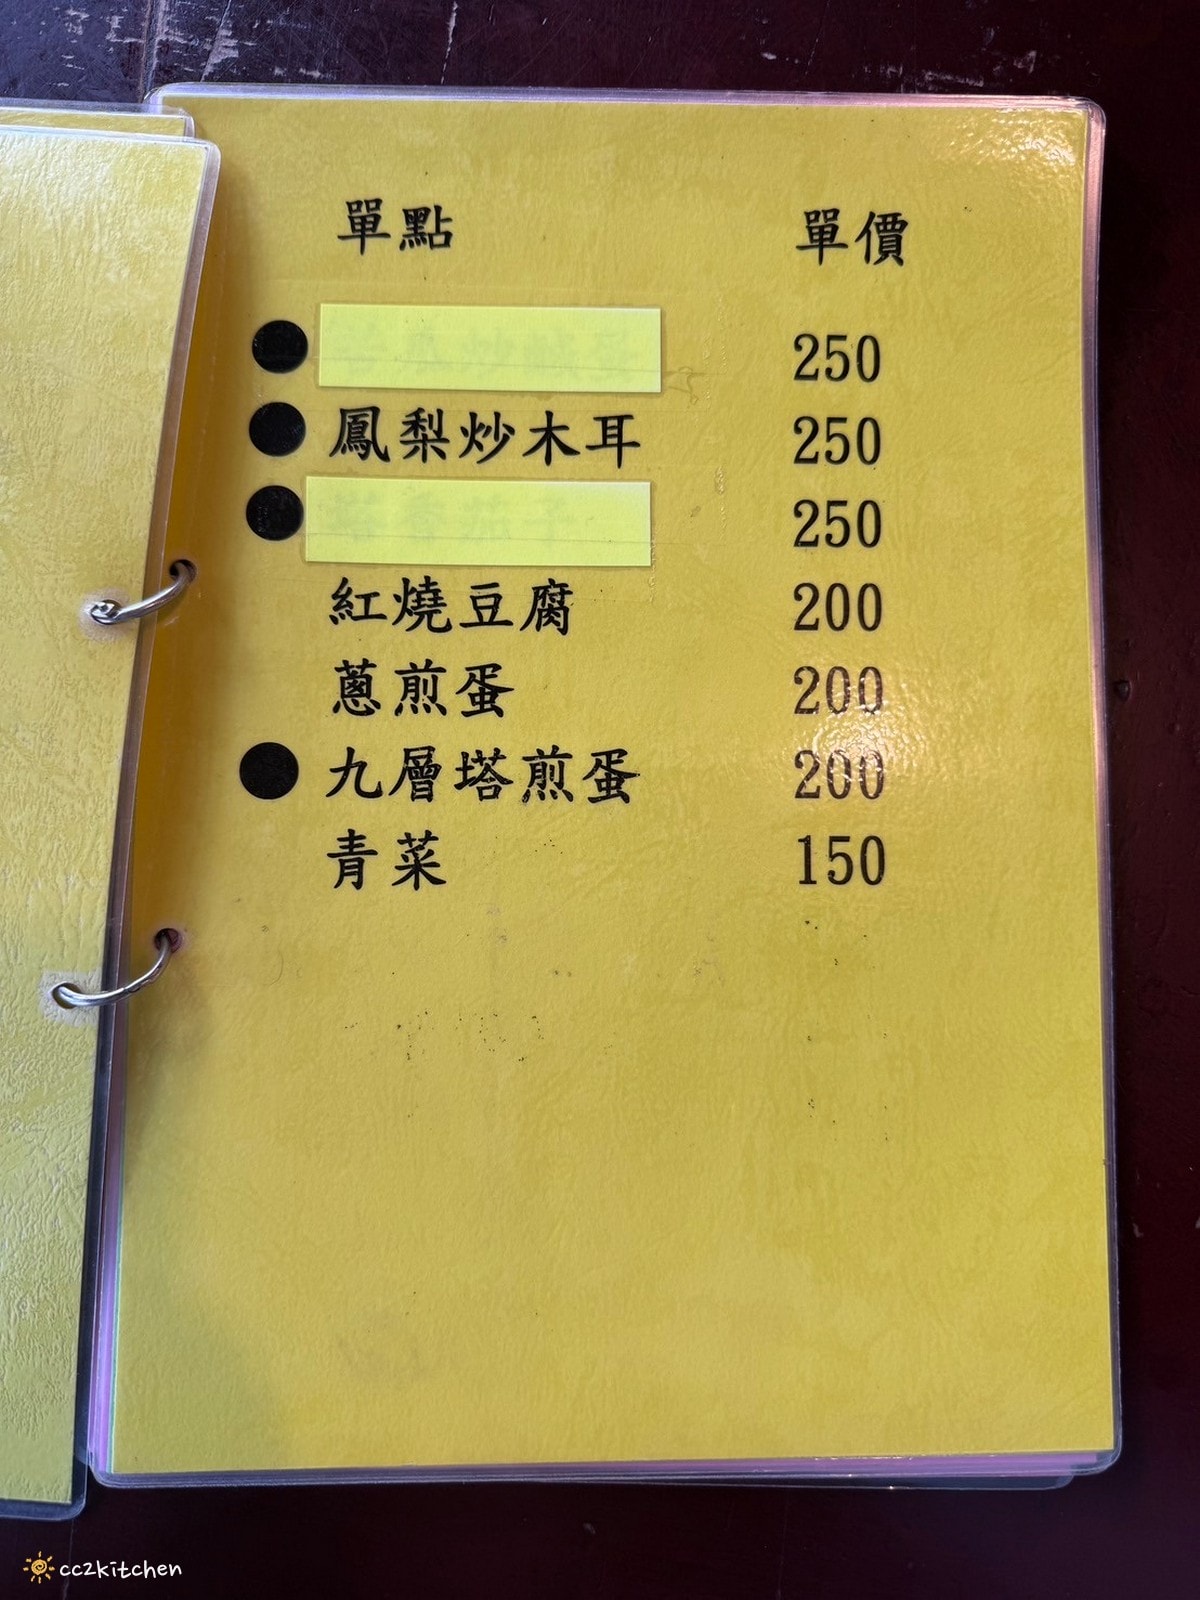 單點 單價
250
鳳梨炒木耳 250
250
紅燒豆腐 200
蔥煎蛋 200
九層塔煎蛋 200
青菜 150
cc2kitchen